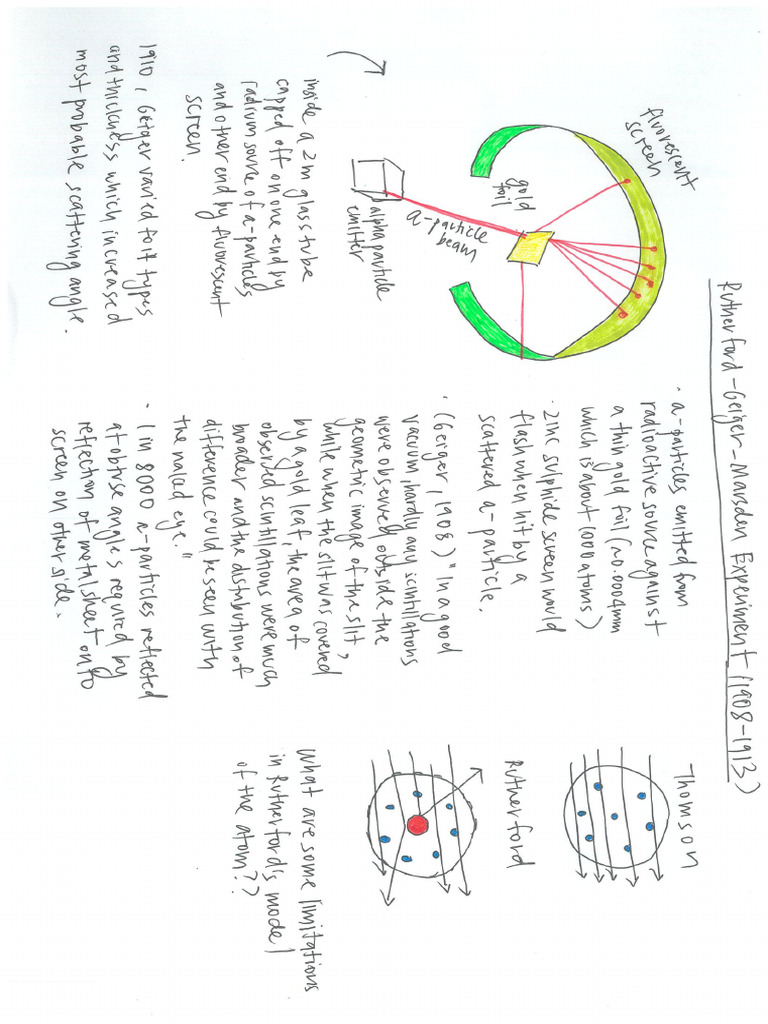 Rutherford-Geiger-Marsden Experiment (1908-1913)
fluorescent
screen
gold
foil
a-particle
beam
alpha particle
emitter
inside a 2m glass tube
capped off on one end by
radium source of a-particles
and other end by fluorescent
screen.
1910, Geiger varied foil types
and thickness which increased
most probable scattering angle.
· a-particles emitted from
radioactive source against
a thin gold foil (~0.0004mm
which is about 1000 atoms)
· Zinc sulphide screen would
flash when hit by a
scattered a-particle.
· (Geiger, 1908) "In a good
vacuum, hardly any scintillations
were observed outside the
geometric image of the slit,
while when the slit was covered
by a gold leaf, the area of
observed scintillations were much
broader and the distribution of
difference could be seen with
the naked eye."
· 1 in 8000 a-particles reflected
at obtuse angles required by
reflection of metal sheet onto
screen on other side.
Thomson
Rutherford
What are some limitations
in Rutherford's model
of the atom??